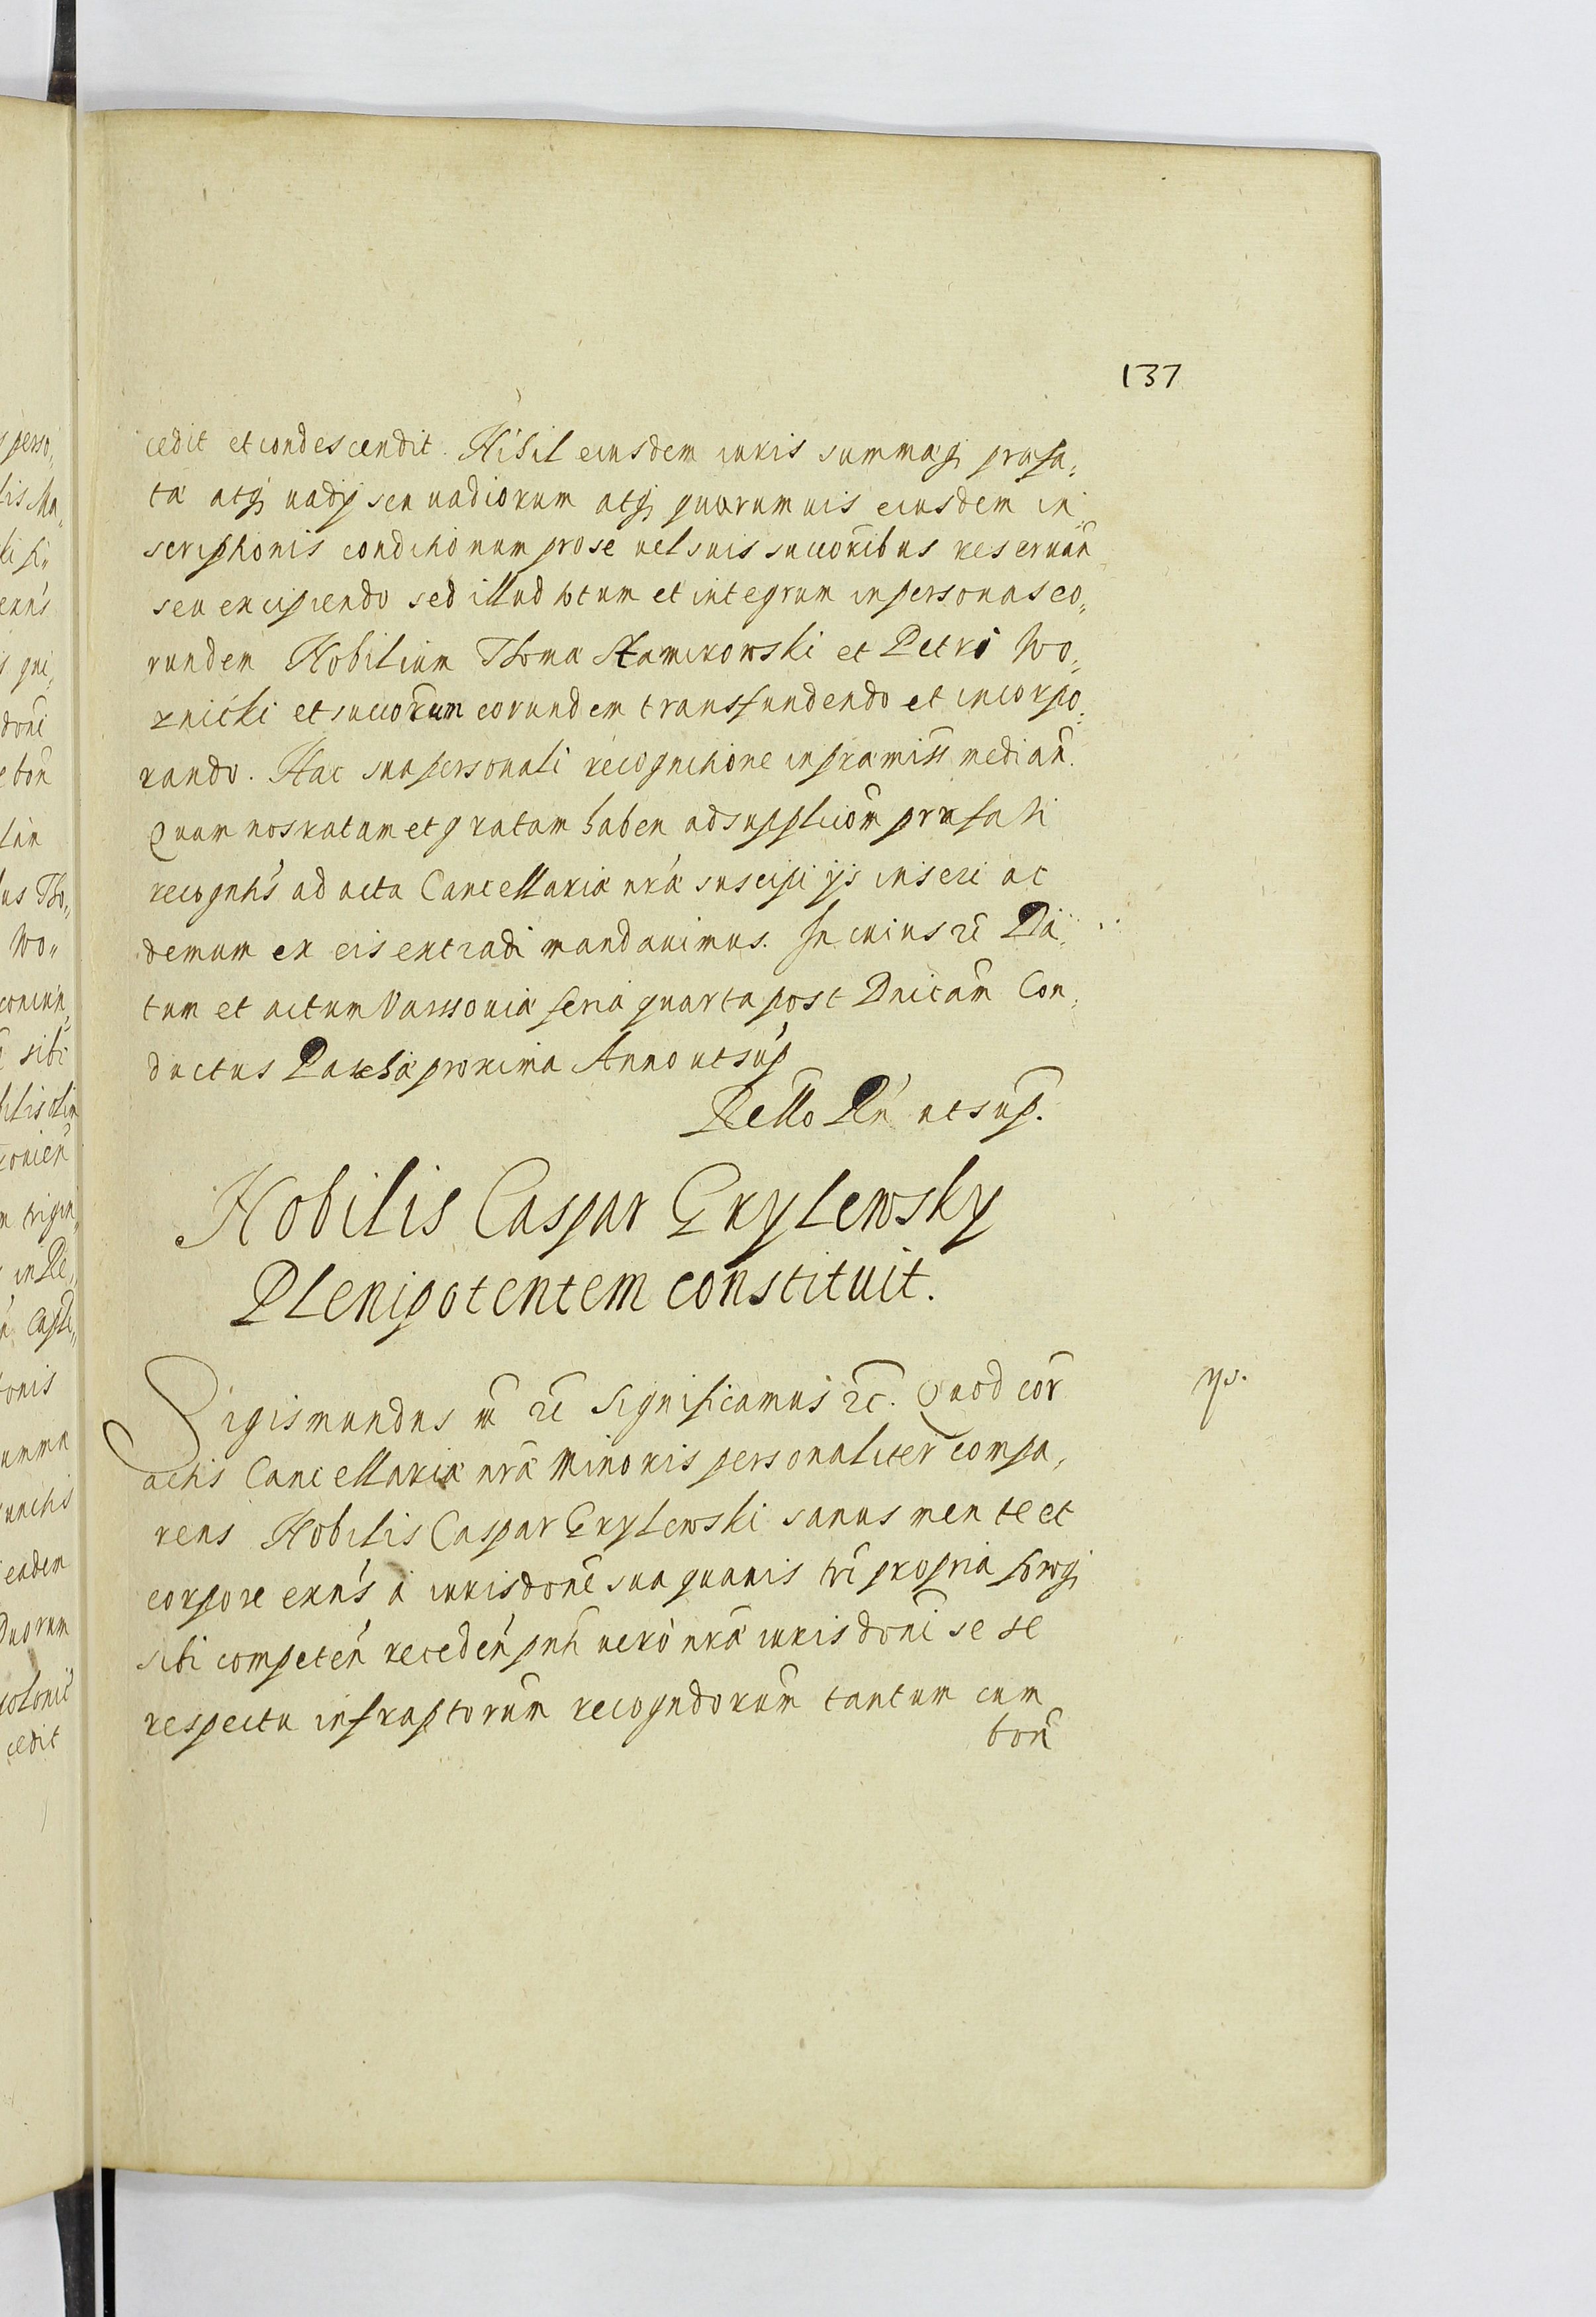 137
cedit et condescendit. Nihil eiusdem iuris summaq; præfa,
tæ atq; uadij seu uadiorum atq; quarumuis eiusdem in
scriptionis conditionum pro se uel suis succoribus reseruan
seu excipiendo sed illud totum et integrum in personas eo,
rundem Nobilium Thomæ Skamirowski et Petri Wo,
znicki et succorum eorundem transfundendo et incorpo,
rando. Hac sua personali recognitione in præmiss median.
Quam nos ratam et gratam haben ad supplicom præfati
recognts ad acta Cancellariæ nræ suscipi ijs inseri ac
demum ex eis extradi mandauimus. In cuius rē Da,
tum et actum Varssouiæ feria quarta post Dnicam Con,
ductus Paschæ proxima Anno ut sup
Rello Rn ut sup.
Nobilis Caspar Grylewsky
Plenipotentem constituit.
Sigismundus etc Significamus etc. Quod cor
ys.
actis Cancellariæ nræ Minoris personaliter compa,
rens Nobilis Caspar Grylewski sanus mente et
corpore exns a iurisdone sua quauis tri propria foroq;
sibi competen receden pnti uero nræ iurisdoni se se
respectu infraptorum recogndorum tantum cum
bon